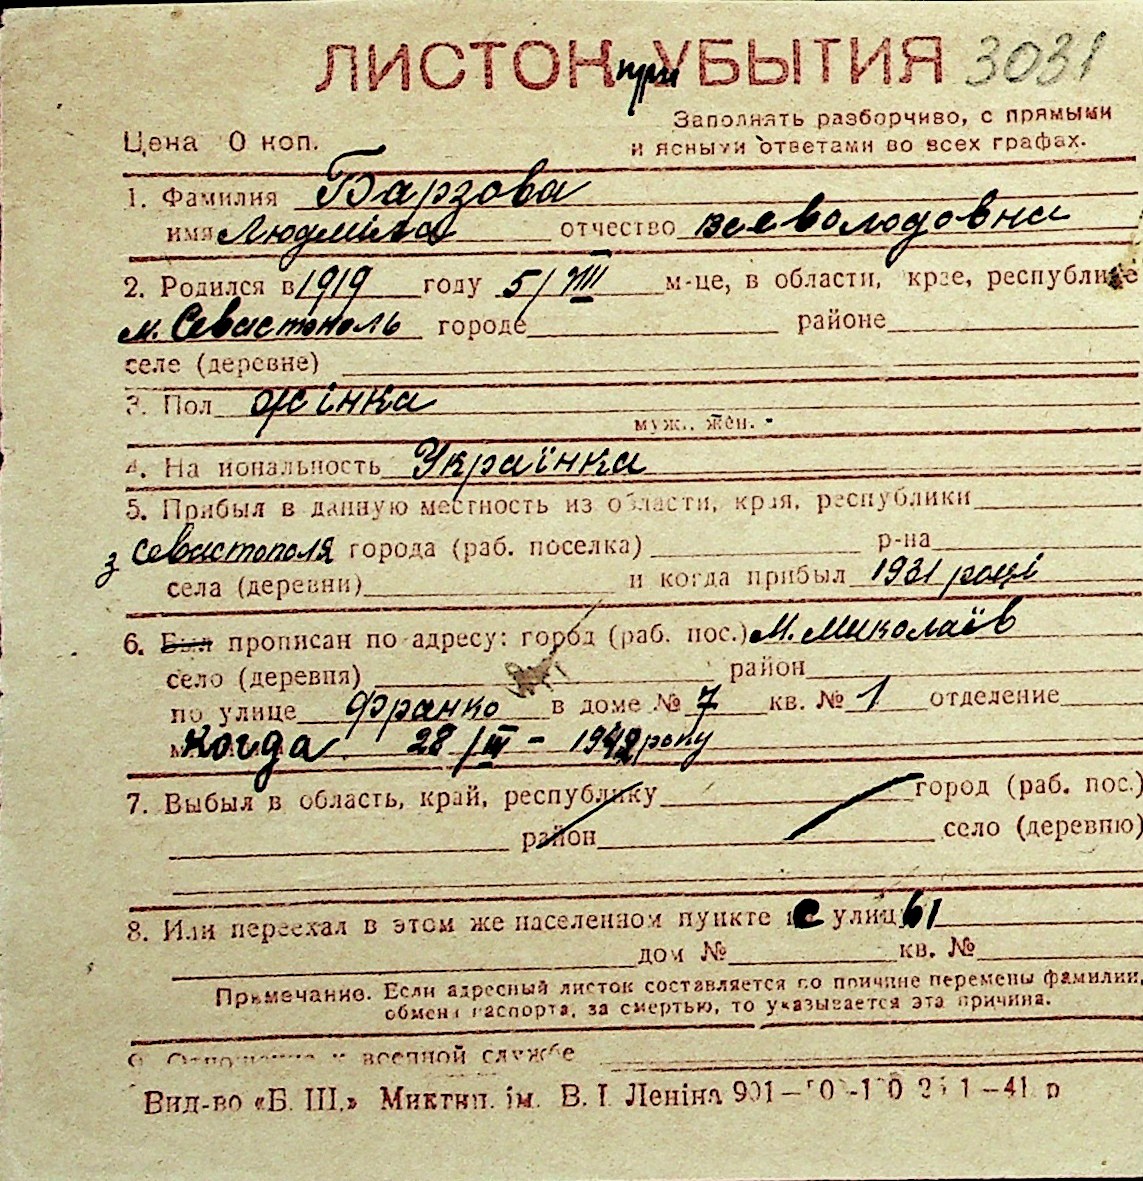 ЛИСТОК при УБЫТИЯ 3031
Заполнять разборчиво, с прямыми
Цена 0 коп. и ясными ответами во всех графах.
1. Фамилия Барзова
имя Людміла отчество Всеволодовна
2. Родился в 1919 году 5/VIII м-це, в области, крае, республике
м. Севастополь городе районе
селе (деревне)
3. Пол жінка
муж., жен.
4. Национальность Українка
5. Прибыл в данную местность из области, края, республики
з Севастополя города (раб. поселка) р-на
села (деревни) и когда прибыл 1931 році
6. Был прописан по адресу: город (раб. пос.) М. Миколаїв
село (деревня) район
по улице Франко в доме № 7 кв. № 1 отделение
Когда 28/III - 1942 року
7. Выбыл в область, край, республику город (раб. пос.)
район село (деревню)
8. Или переехал в этом же населенном пункте с улицы
дом № кв. №
Примечание. Если адресный листок составляется по причине перемены фамилии,
обмена паспорта, за смертью, то указывается эта причина.
9. Отношение к военной службе
Вид-во «Б. Ш.» Миктип. ім. В. І. Леніна